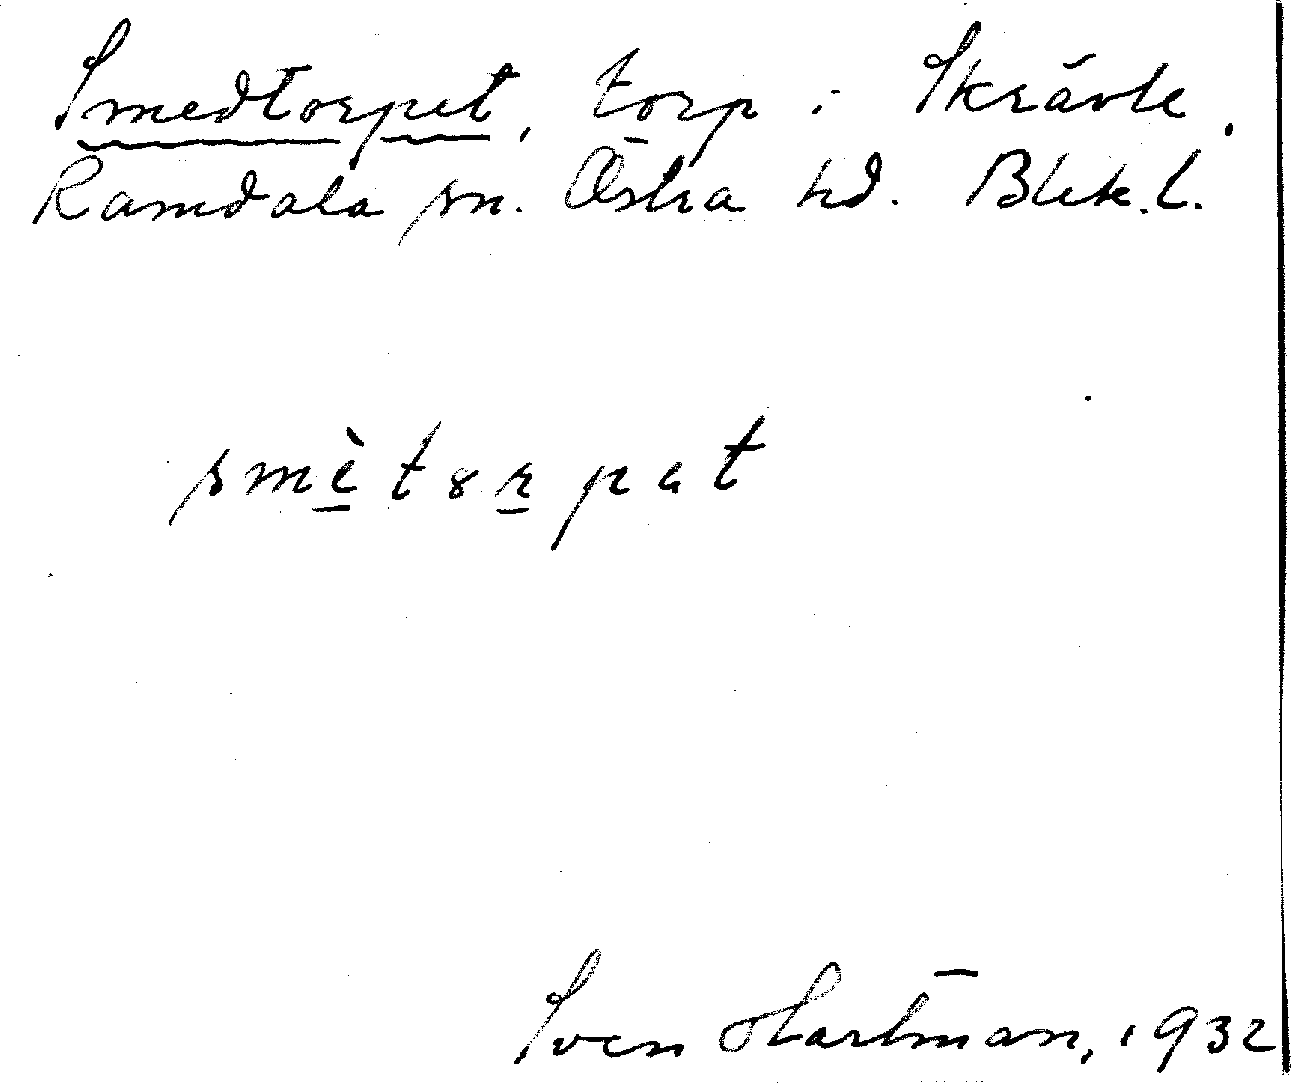 Smedtorpet, torp i Skrävle.
Ramdala sn. Östra hd. Blek. l.
smètȣrpat
Sven Hartman, 1932